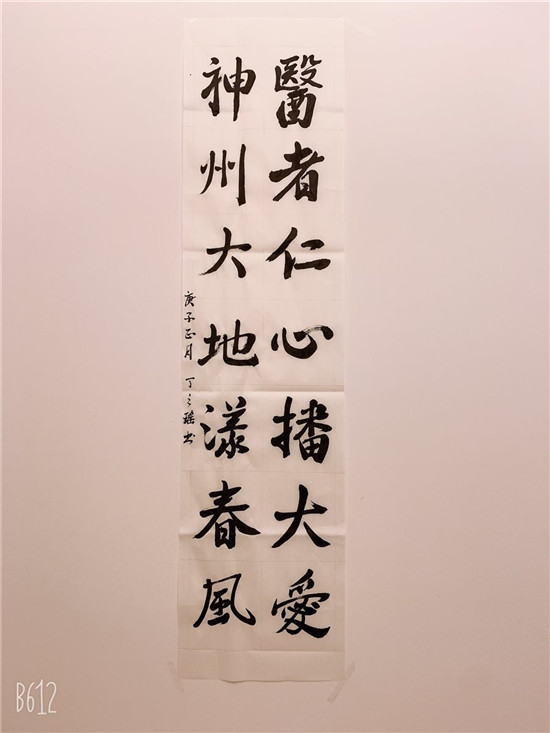 醫者仁心播大愛
神州大地漾春風
庚子正月 丁之瑤书
B612